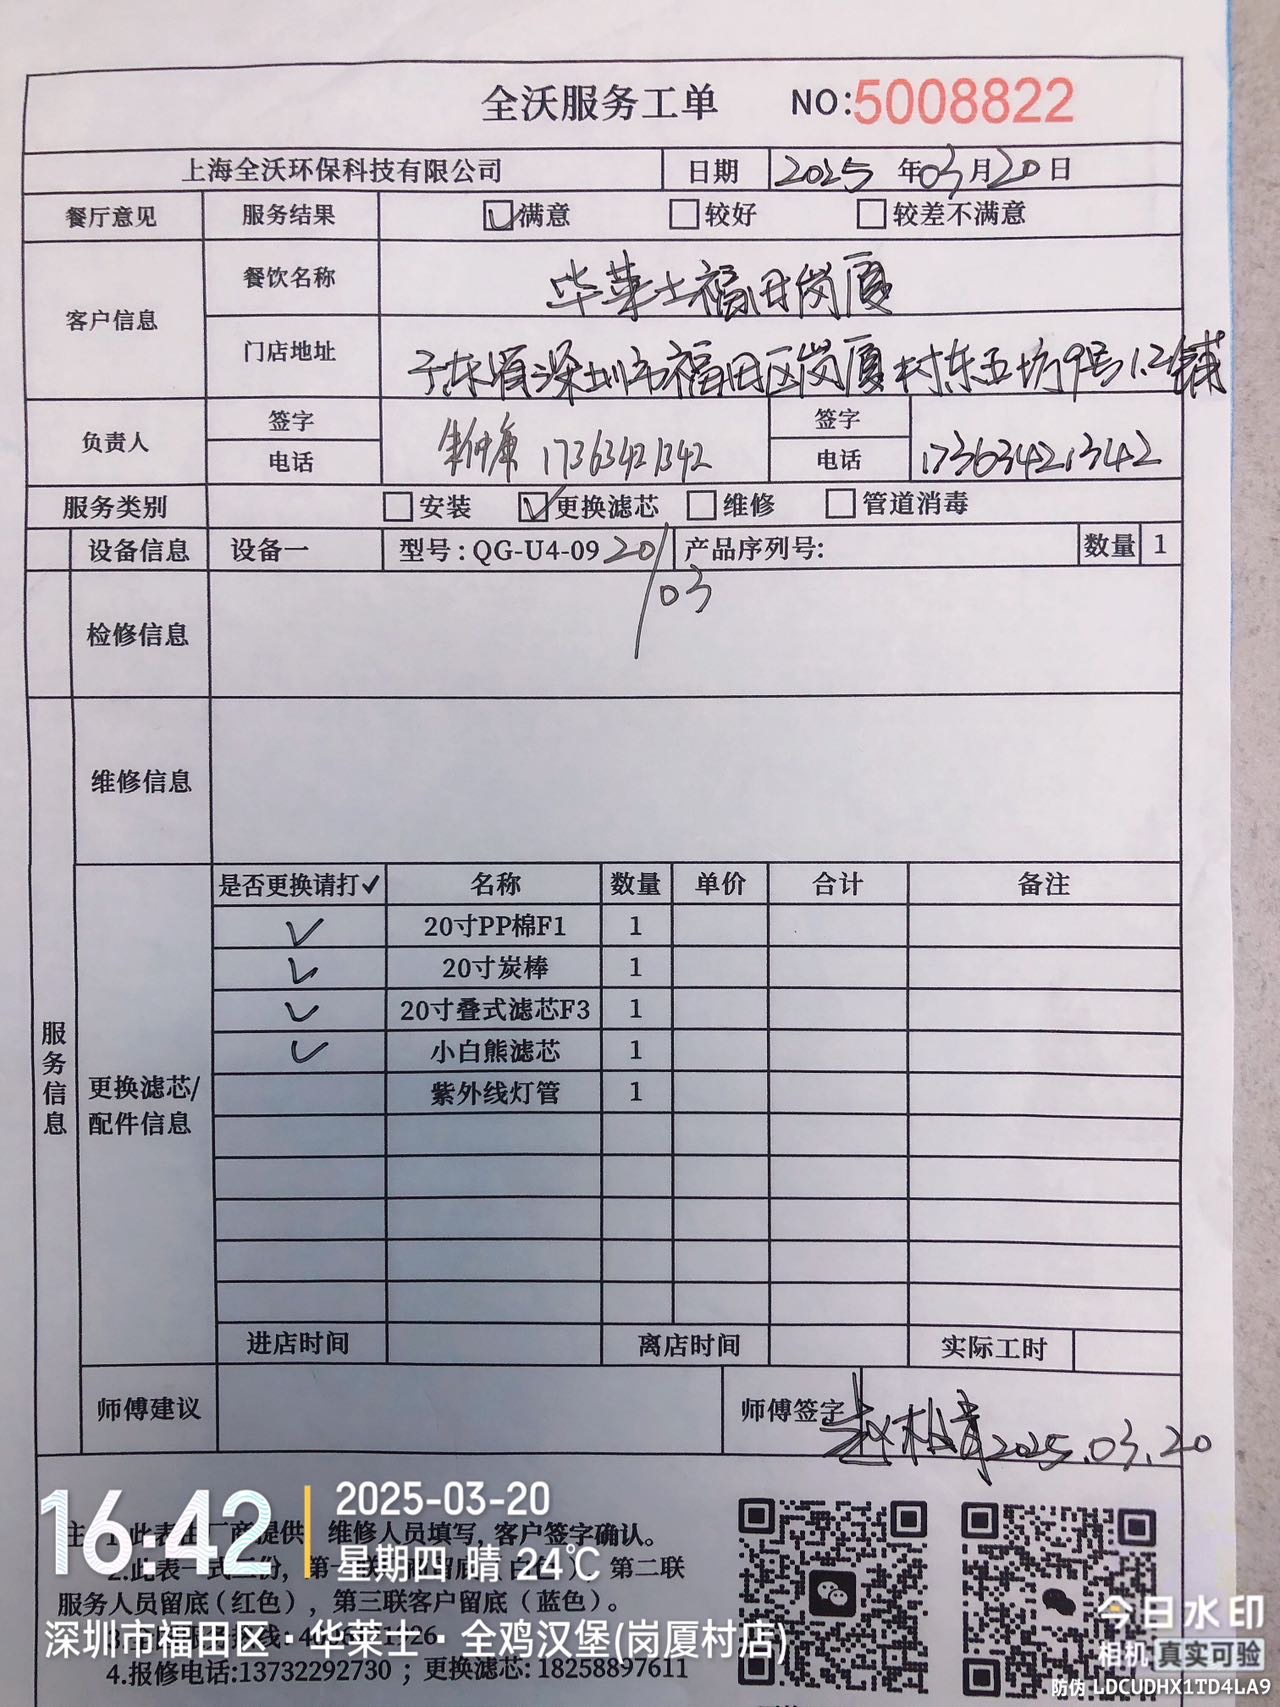 全沃服务工单 NO:5008822
上海全沃环保科技有限公司 日期 2025 年03月20日
餐厅意见 服务结果 满意 较好 较差不满意
客户信息 餐饮名称 华莱士福田岗厦
门店地址 广东省深圳市福田区岗厦村东五坊9号1.2铺
负责人 签字 签字
电话 17363421342 电话 17363421342
服务类别 安装 更换滤芯 维修 管道消毒
设备信息 设备一 型号：QG-U4-09 20/03 产品序列号: 数量 1
检修信息
维修信息
服务信息
更换滤芯/配件信息
是否更换请打✓ 名称 数量 单价 合计 备注
✓ 20寸PP棉F1 1
✓ 20寸炭棒 1
✓ 20寸叠式滤芯F3 1
✓ 小白熊滤芯 1
紫外线灯管 1
进店时间 离店时间 实际工时
师傅建议 师傅签字 2025.03.20
此表由厂商提供 维修人员填写,客户签字确认。
2.此表一式 份，第一联 第二联
服务人员留底（红色），第三联客户留底（蓝色）。
4.报修电话:13732292730；更换滤芯: 18258897611
16:42 2025-03-20
星期四 晴 24℃
深圳市福田区·华莱士·全鸡汉堡(岗厦村店)
今日水印
相机 真实可验
防伪 LDCUDHX1TD4LA9